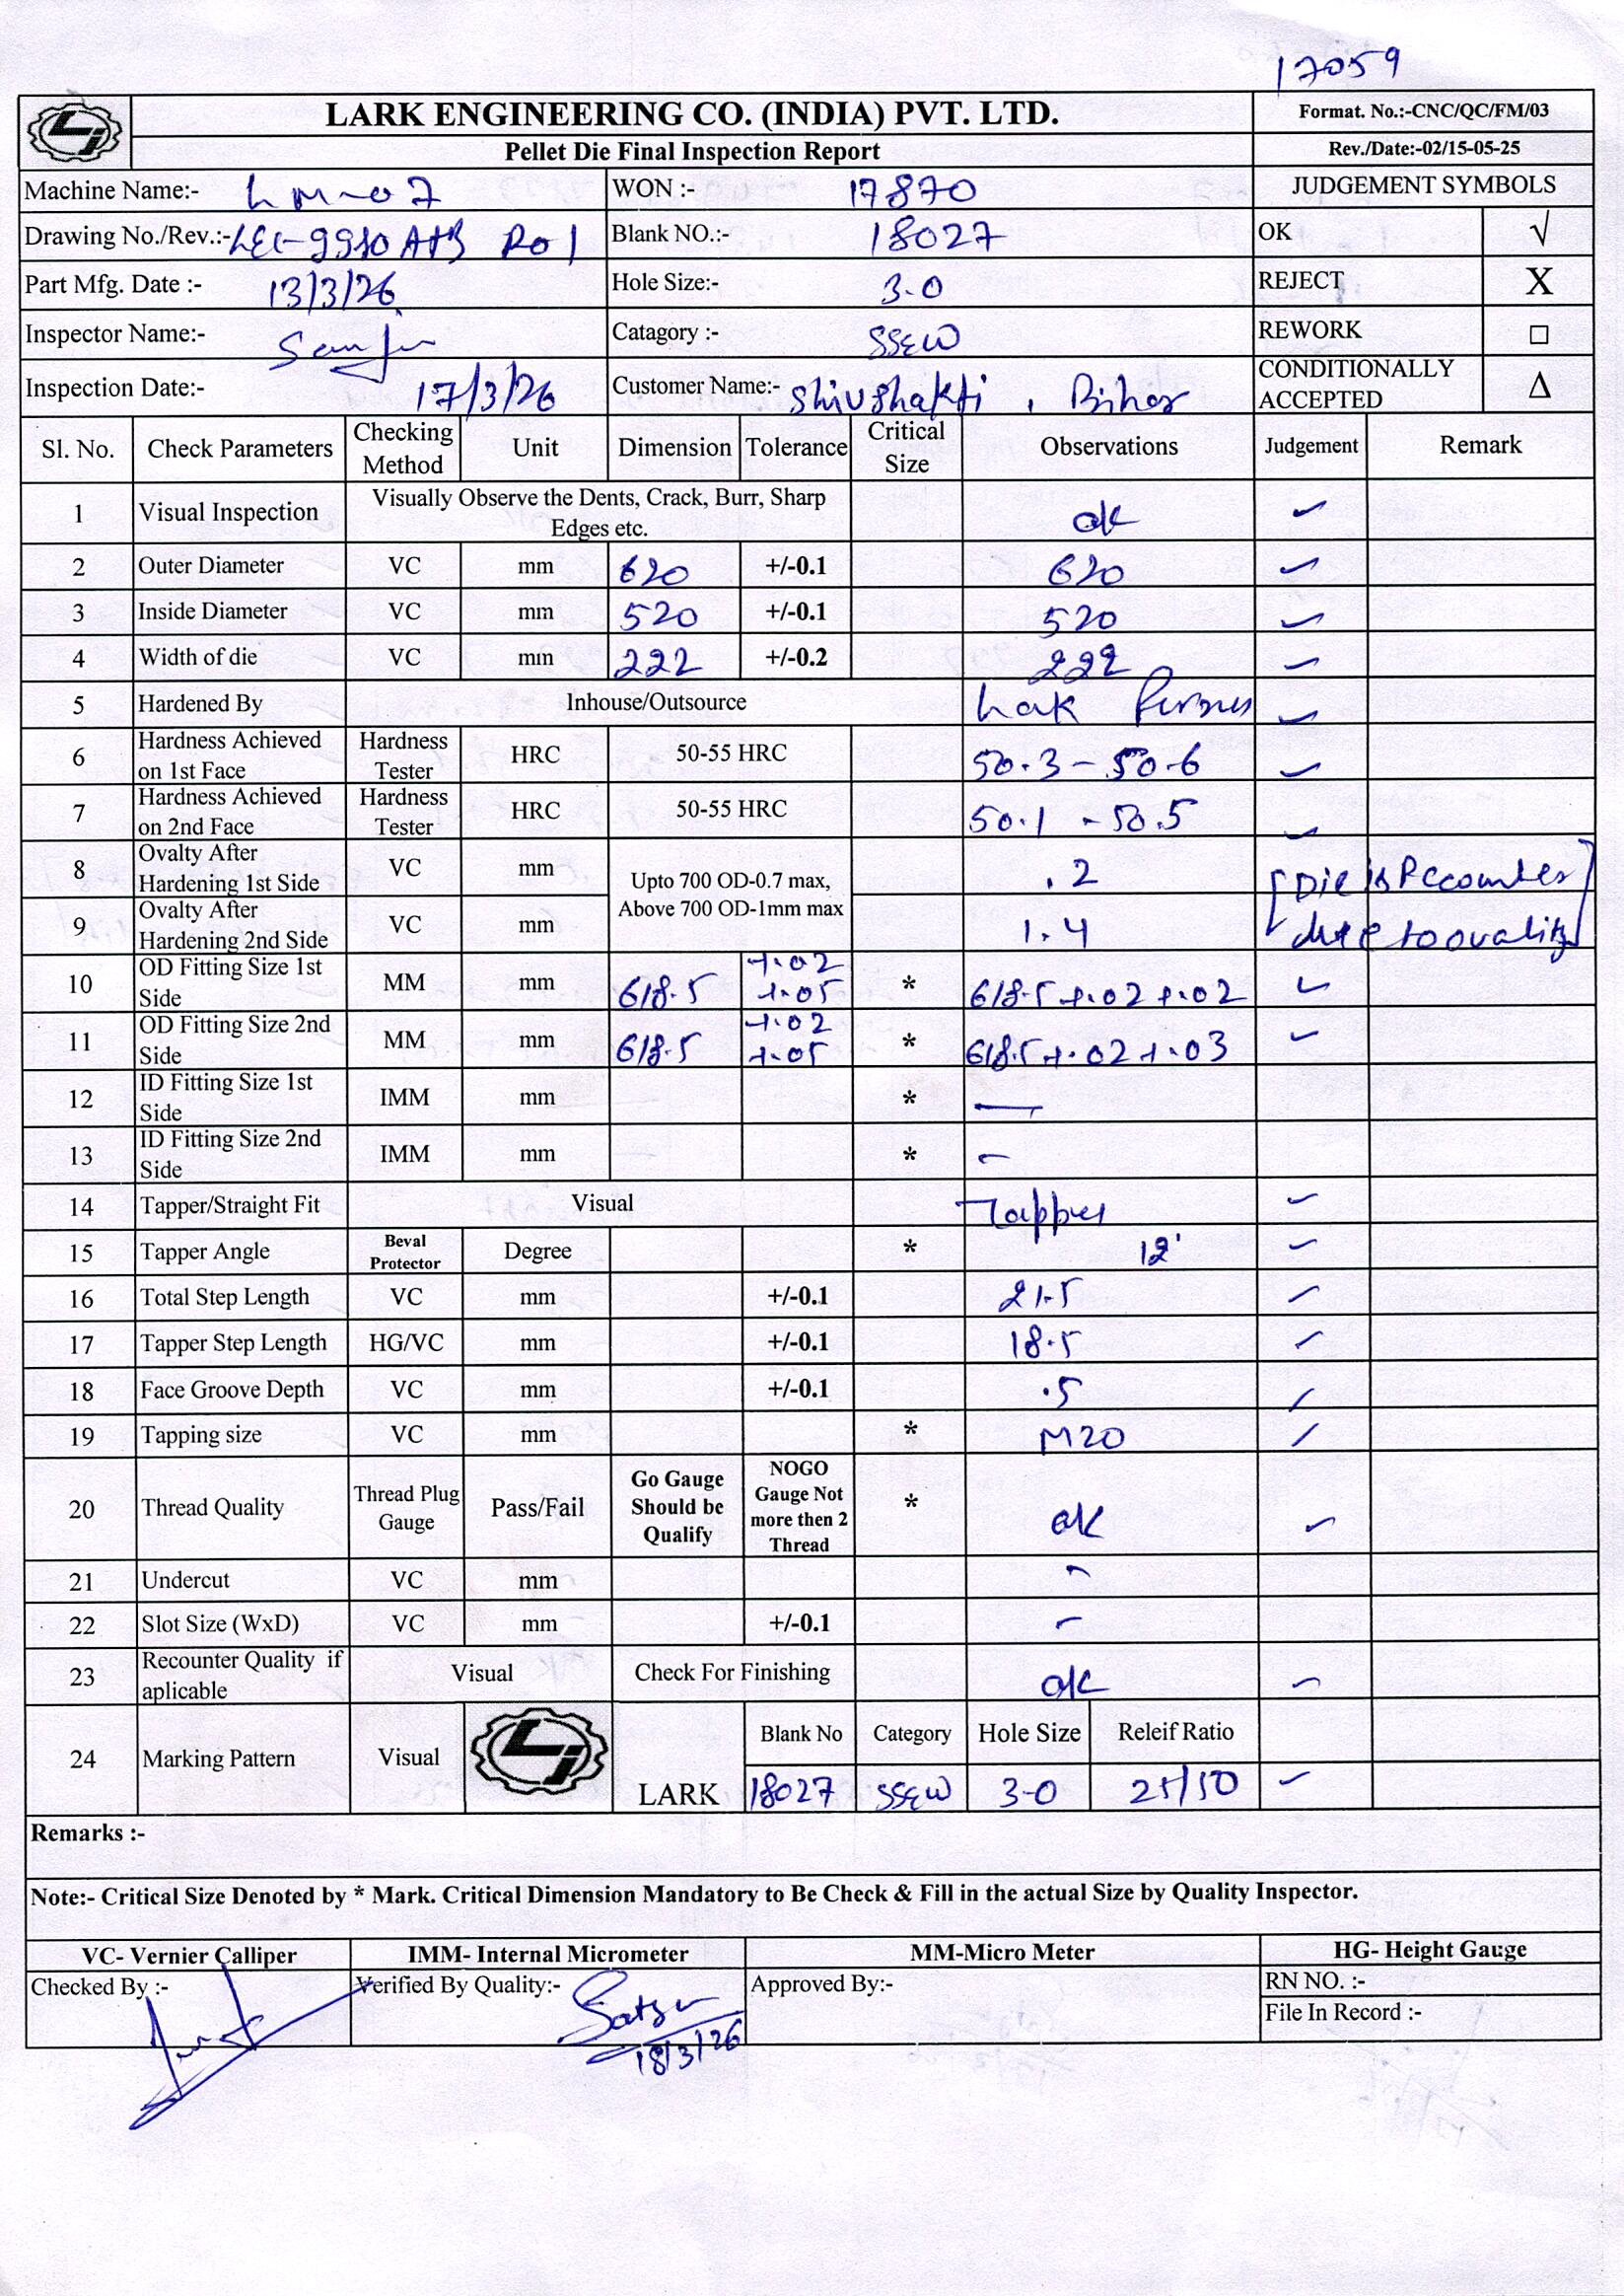 17059
LARK ENGINEERING CO. (INDIA) PVT. LTD. Format. No.:-CNC/QC/FM/03
Pellet Die Final Inspection Report Rev./Date:-02/15-05-25
Machine Name:- LM-07 WON :- 17870 JUDGEMENT SYMBOLS
Drawing No./Rev.:- LEC-9910 A+B R01 Blank NO.:- 18027 OK √
Part Mfg. Date :- 13/3/26 Hole Size:- 3.0 REJECT X
Inspector Name:- Catagory :- SSEW REWORK □
Inspection Date:- 17/3/26 Customer Name:- Shivshakti, Bihar CONDITIONALLY ACCEPTED Δ
Sl. No. Check Parameters Checking Method Unit Dimension Tolerance Critical Size Observations Judgement Remark
1 Visual Inspection Visually Observe the Dents, Crack, Burr, Sharp Edges etc. ok ✓
2 Outer Diameter VC mm 620 +/-0.1 620 ✓
3 Inside Diameter VC mm 520 +/-0.1 520 ✓
4 Width of die VC mm 222 +/-0.2 222 ✓
5 Hardened By Inhouse/Outsource ✓
6 Hardness Achieved on 1st Face Hardness Tester HRC 50-55 HRC 50.3 - 50.6 ✓
7 Hardness Achieved on 2nd Face Hardness Tester HRC 50-55 HRC 50.1 - 50.5 ✓
8 Ovalty After Hardening 1st Side VC mm Upto 700 OD-0.7 max, Above 700 OD-1mm max .2 [Die is Recounter
9 Ovalty After Hardening 2nd Side VC mm 1.4 due to ovality]
10 OD Fitting Size 1st Side MM mm 618.5 +.02 +.05 * 618.5 +.02 +.02 ✓
11 OD Fitting Size 2nd Side MM mm 618.5 +.02 +.05 * 618.5 +.02 +.03 ✓
12 ID Fitting Size 1st Side IMM mm * —
13 ID Fitting Size 2nd Side IMM mm * -
14 Tapper/Straight Fit Visual Tapper ✓
15 Tapper Angle Beval Protector Degree * 12' ✓
16 Total Step Length VC mm +/-0.1 21.5 ✓
17 Tapper Step Length HG/VC mm +/-0.1 18.5 ✓
18 Face Groove Depth VC mm +/-0.1 .5 ✓
19 Tapping size VC mm * M20 ✓
20 Thread Quality Thread Plug Gauge Pass/Fail Go Gauge Should be Qualify NOGO Gauge Not more then 2 Thread * ok ✓
21 Undercut VC mm -
22 Slot Size (WxD) VC mm +/-0.1 -
23 Recounter Quality if aplicable Visual Check For Finishing ok ✓
24 Marking Pattern Visual LARK Blank No Category Hole Size Releif Ratio
18027 SSEW 3.0 25/10 ✓
Remarks :-
Note:- Critical Size Denoted by * Mark. Critical Dimension Mandatory to Be Check & Fill in the actual Size by Quality Inspector.
VC- Vernier Calliper IMM- Internal Micrometer MM-Micro Meter HG- Height Gauge
Checked By :- Verified By Quality:- Approved By:- RN NO. :-
18/3/26 File In Record :-